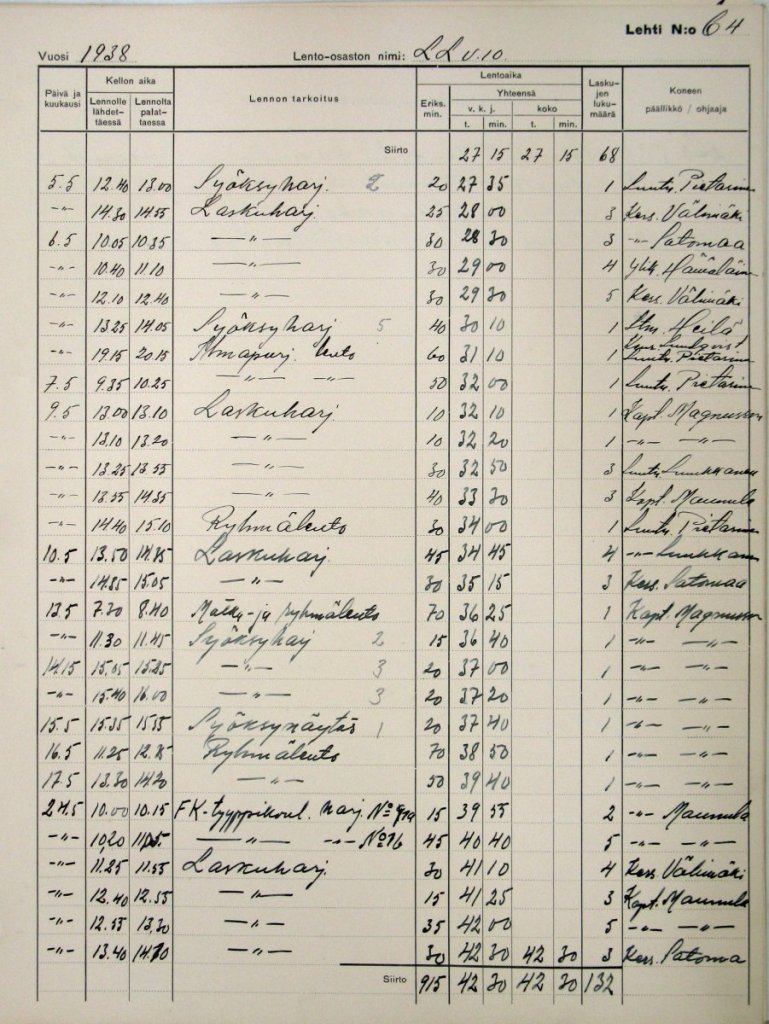 Lehti N:o 64
Vuosi 1938 Lento-osaston nimi: LLv.10.
Päivä ja kuukausi Kellon aika Lennolle lähdettäessä Lennolta palattaessa Lennon tarkoitus Lentoaika Eriks. min. Yhteensä v. k. j. t. min. koko t. min. Laskujen lukumäärä Koneen päällikkö / ohjaaja
Siirto 27 15 27 15 68
5.5 12.40 13.00 Syöksyharj. 2 20 27 35 1 Luutn. Pietarinen
-"- 14.30 14.55 Laskuharj. 25 28 00 3 Kers. Välimäki
6.5 10.05 10.35 -"- 30 28 30 3 -"- Satomaa
-"- 10.40 11.10 -"- 30 29 00 4 Ylik. Hämäläinen
-"- 12.10 12.40 -"- 30 29 30 5 Kers. Välimäki
-"- 13.25 14.05 Syöksyharj 5 40 30 10 1 Ltm. Heilä
-"- 19.15 20.15 lento 60 31 10 1 Lundqvist Luutn. Pietarinen
7.5 9.35 10.25 -"- -"- 50 32 00 1 Luutn. Pietarinen
9.5 13.00 13.10 Laskuharj. 10 32 10 1 Kapt. Magnusson
-"- 13.10 13.20 -"- 10 32 20 1 -"- -"-
-"- 13.25 13.55 -"- 30 32 50 3 Luutn. Luukkanen
-"- 13.55 14.35 -"- 40 33 30 3 Kapt. Maunula
-"- 14.40 15.10 Ryhmälento 30 34 00 1 Luutn. Pietarinen
10.5 13.50 14.35 Laskuharj. 45 34 45 4 -"- Luukkanen
-"- 14.35 15.05 -"- 30 35 15 3 Kers. Satomaa
13.5 7.30 8.40 Matka- ja ryhmälento 70 36 25 1 Kapt. Magnusson
-"- 11.30 11.45 Syöksyharj 2 15 36 40 1 -"- -"-
14.15 15.05 15.25 -"- 3 20 37 00 1 -"- -"-
-"- 15.40 16.00 -"- 3 20 37 20 1 -"- -"-
15.5 15.35 15.55 Syöksynäytös 1 20 37 40 1 -"- -"-
16.5 11.25 12.35 Ryhmälento 70 38 50 1 -"- -"-
17.5 13.30 14.20 -"- 50 39 40 1 -"- -"-
24.5 10.00 10.15 FK-tyyppikoul. harj. No 15 39 55 2 -"- Maunula
-"- 10.20 11.05 -"- -"- No 16 45 40 40 5 -"- -"-
-"- 11.25 11.55 Laskuharj. 30 41 10 4 Kers. Välimäki
-"- 12.40 12.55 -"- 15 41 25 3 Kapt. Maunula
-"- 12.55 13.30 -"- 35 42 00 5 -"- -"-
-"- 13.40 14.10 -"- 30 42 30 42 30 3 Kers. Satomaa
Siirto 915 42 30 42 30 132